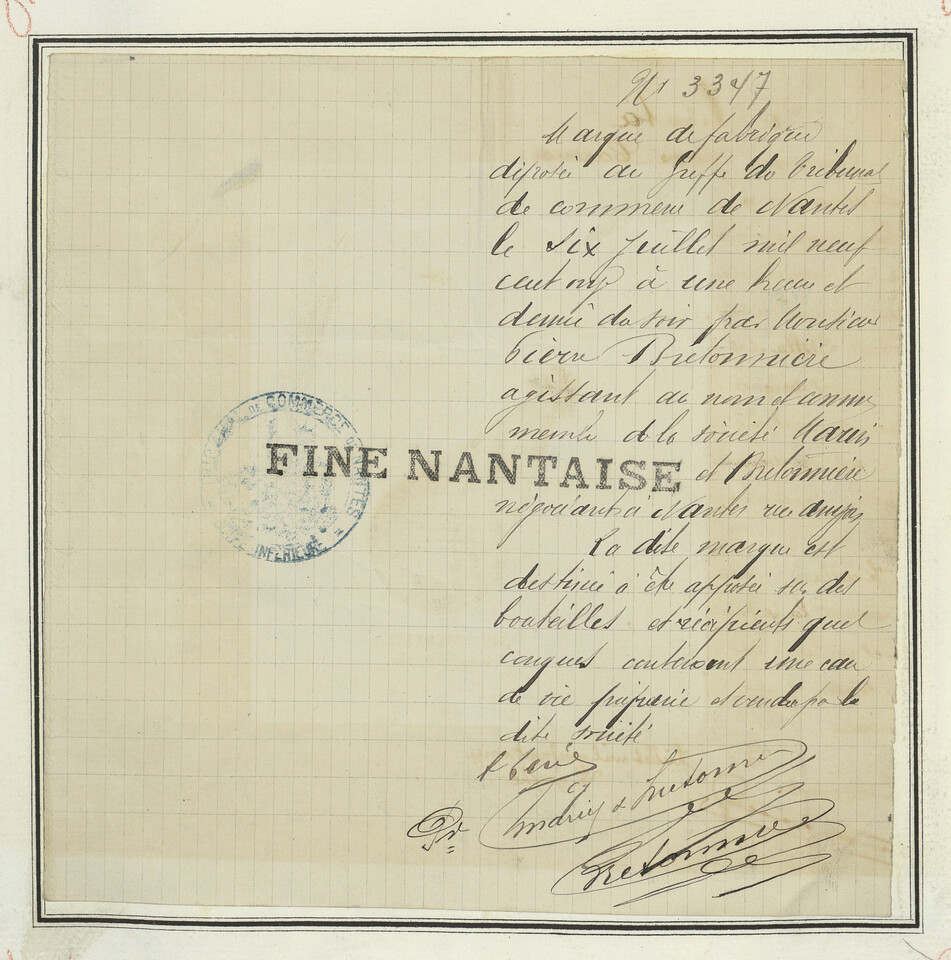 No 3347
Marque de fabrique
déposée au Greffe du Tribunal
de commerce de Nantes
le six Juillet mil neuf
cent onze à une heure et
demie du soir par Monsieur
Pierre Bretonnière
agissant au nom et comme
membre de la société
FINE NANTAISE
et Bretonnière
négociants à Nantes rue
La dite marque est
destinée à être apposée sur des
bouteilles et récipients quel
conques contenant une eau
de vie préparée et vendue par la
dite société
DE COMMERCE NANTES
INFERIEURE
Pr
& Bretonnière
Bretonnière